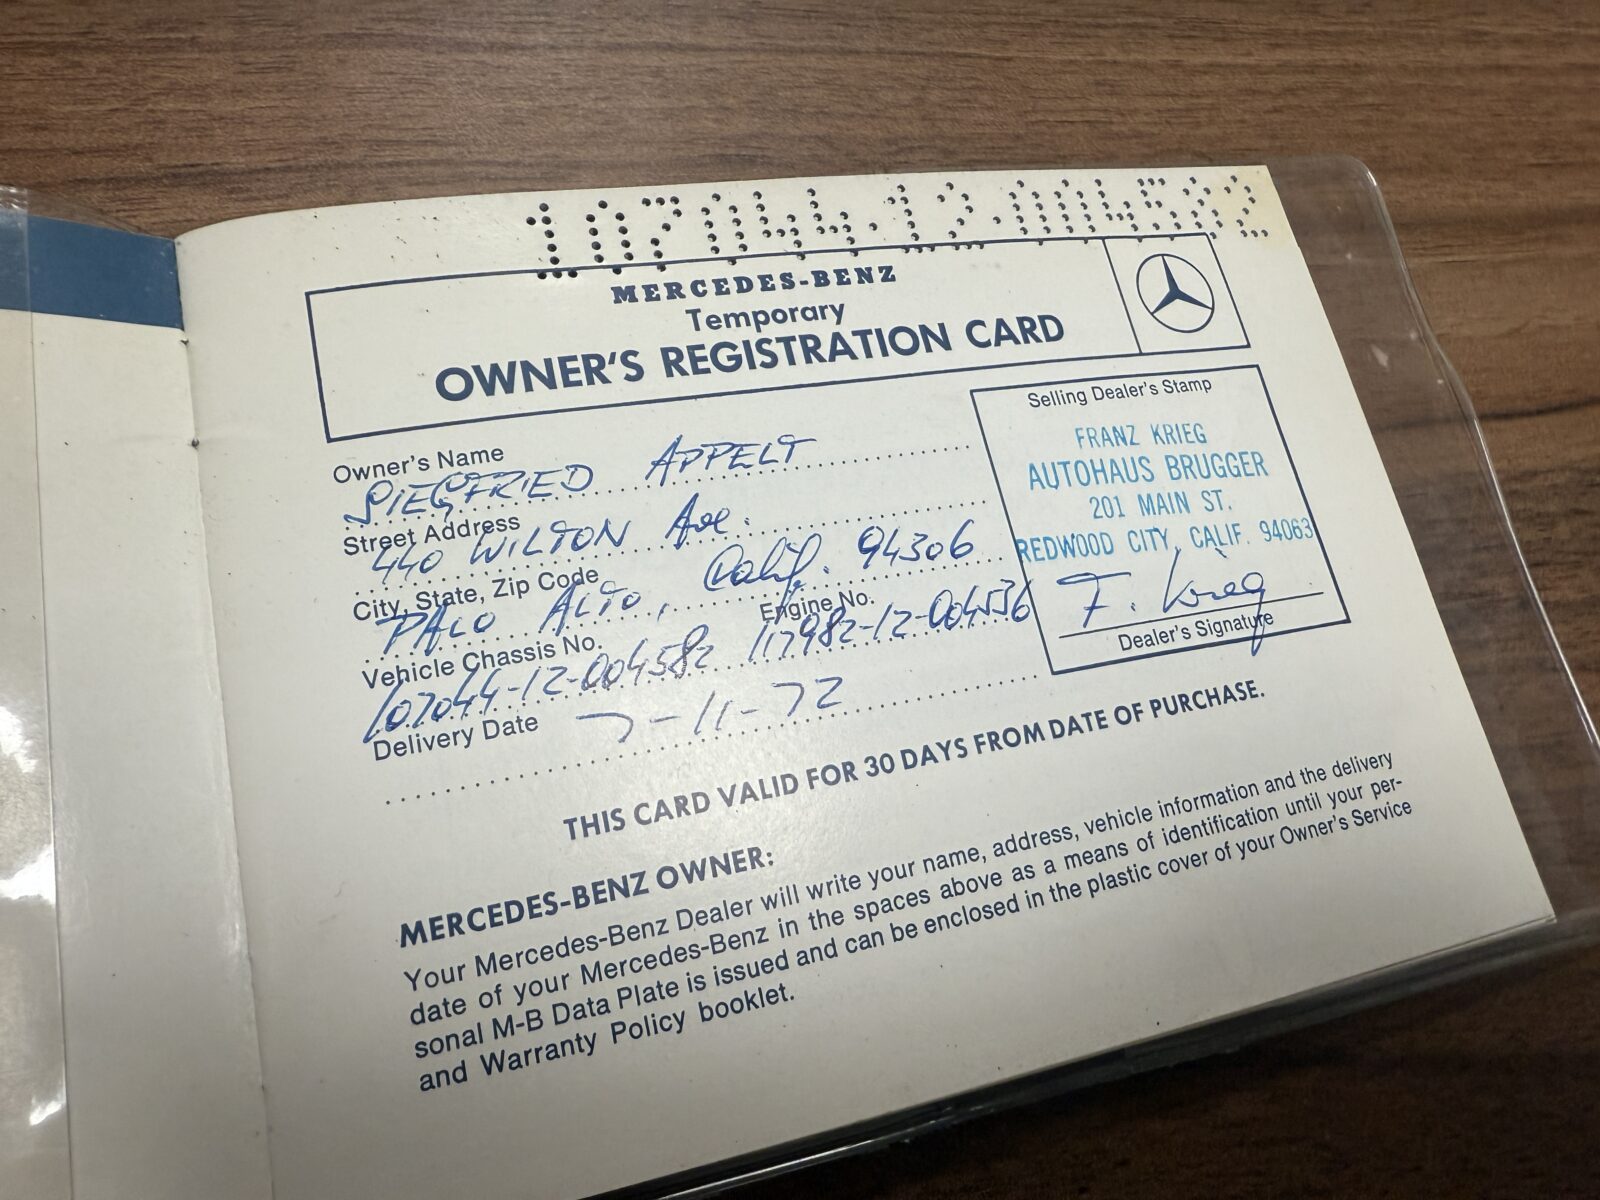 107044-12-004582
MERCEDES-BENZ
Temporary
OWNER'S REGISTRATION CARD
Selling Dealer's Stamp
FRANZ KRIEG
AUTOHAUS BRUGGER
201 MAIN ST.
REDWOOD CITY, CALIF. 94063
F. Krieg
Dealer's Signature
Owner's Name
SIEGFRIED APPELT
Street Address
440 WILTON Ave.
City, State, Zip Code
PALO ALTO, Calif. 94306
Vehicle Chassis No. Engine No.
107044-12-004582 117982-12-004536
Delivery Date 7-11-72
THIS CARD VALID FOR 30 DAYS FROM DATE OF PURCHASE.
MERCEDES-BENZ OWNER:
Your Mercedes-Benz Dealer will write your name, address, vehicle information and the delivery
date of your Mercedes-Benz in the spaces above as a means of identification until your per-
sonal M-B Data Plate is issued and can be enclosed in the plastic cover of your Owner's Service
and Warranty Policy booklet.